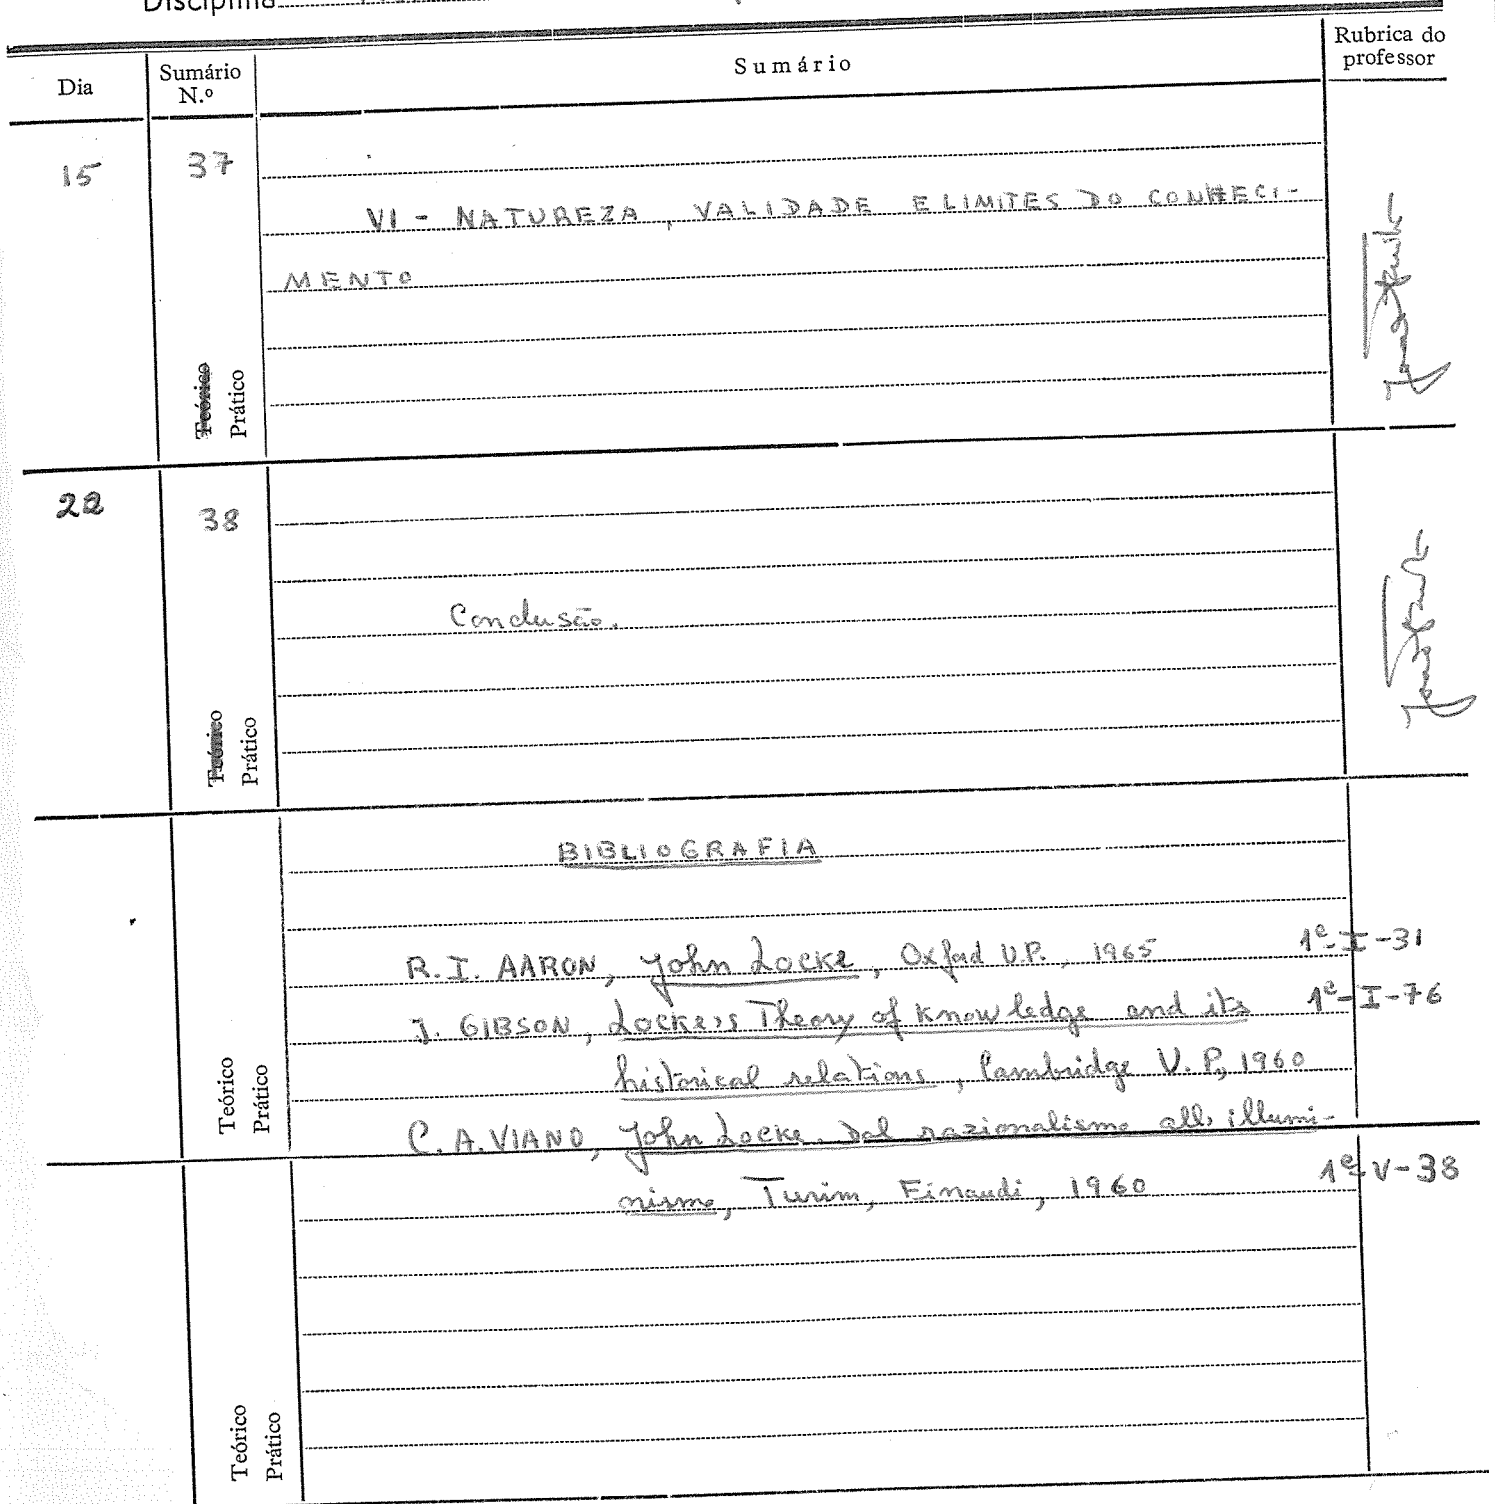 Disciplina
Dia
Sumário N.º
Sumário
Rubrica do professor
15
37
VI - NATUREZA, VALIDADE E LIMITES DO CONHECI-
MENTO
Teórico
Prático
22
38
Conclusão.
Teórico
Prático
BIBLIOGRAFIA
R. I. AARON, John Locke, Oxford U.P., 1965 1e-I-31
J. GIBSON, Locke's Theory of Knowledge and its 1e-I-76
historical relations, Cambridge U. P., 1960
C. A. VIANO, John Locke. Dal razionalismo all'illumi-
nismo, Turim, Einaudi, 1960 1e-V-38
Teórico
Prático
Teórico
Prático